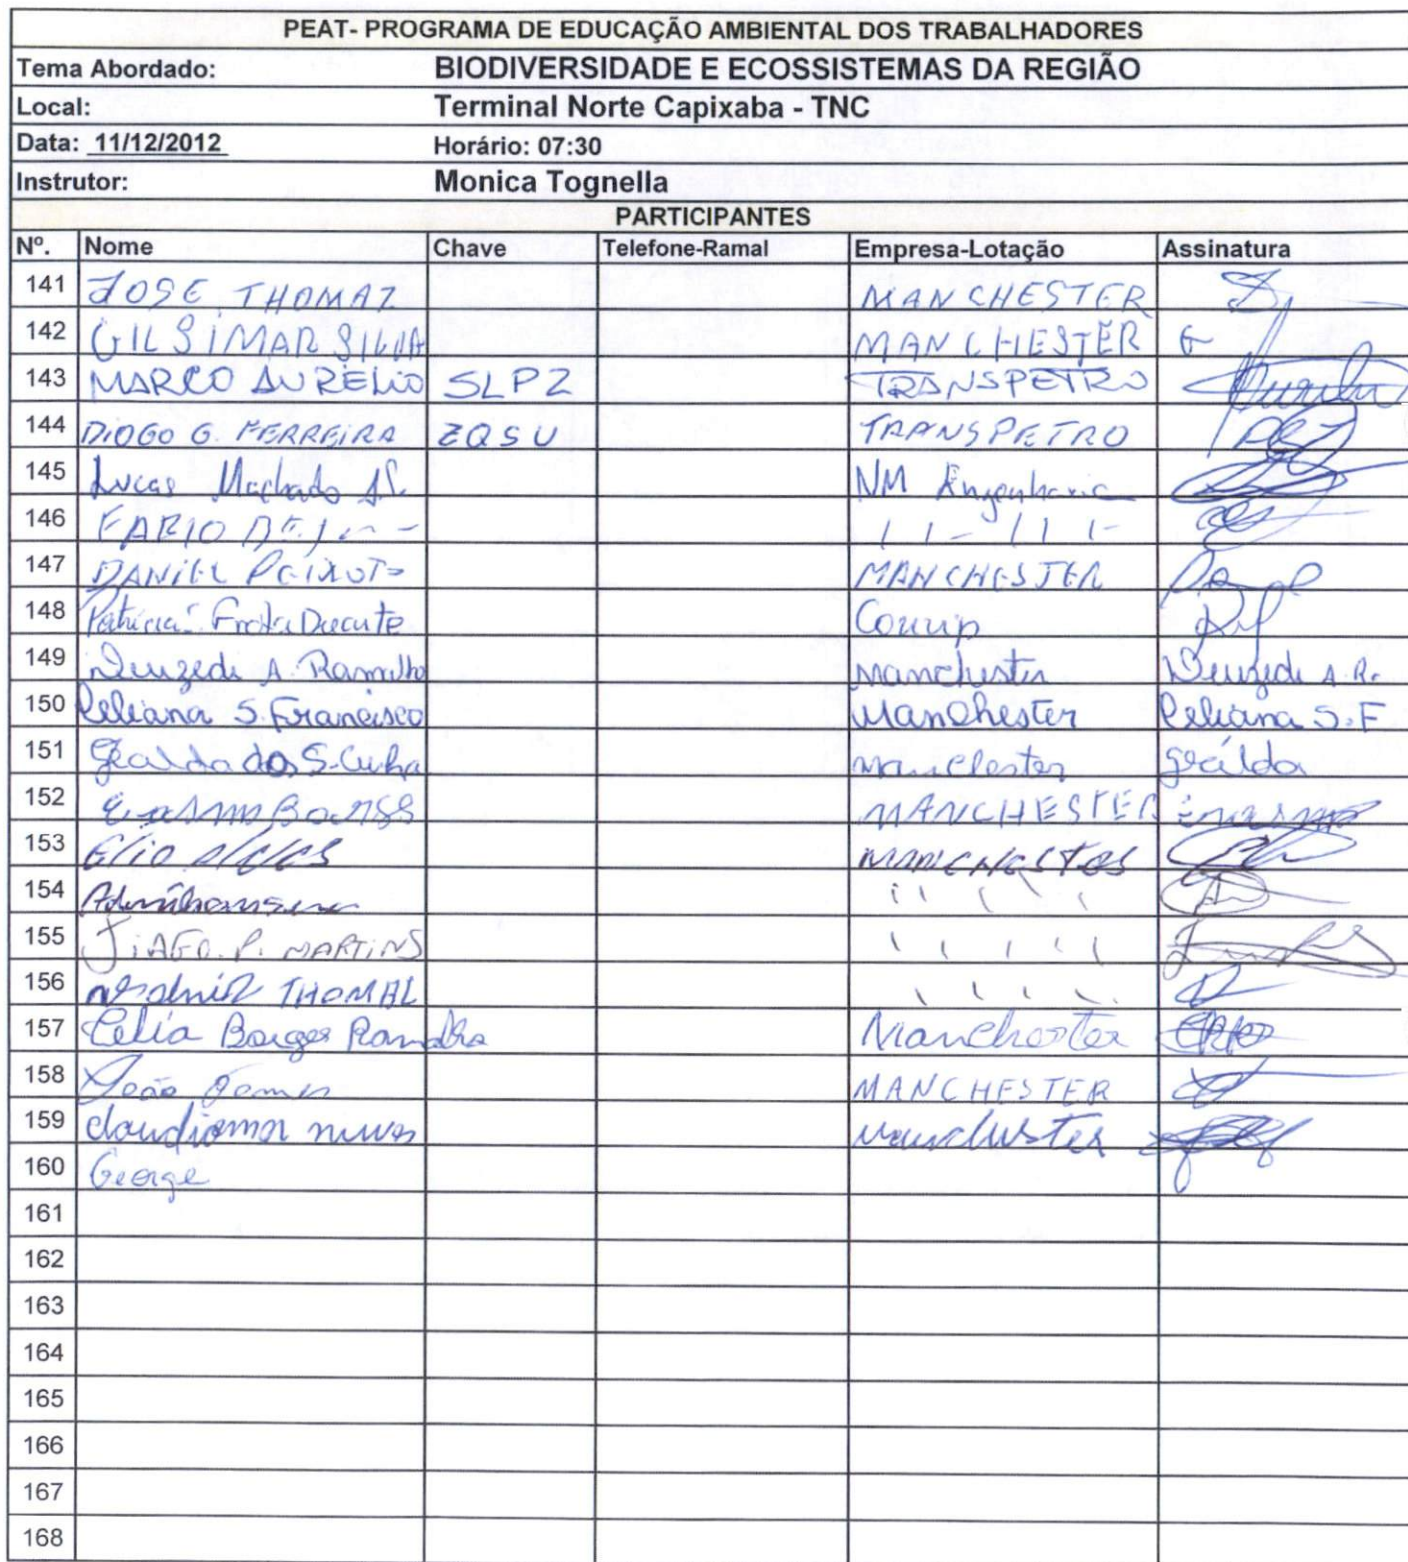 PEAT- PROGRAMA DE EDUCAÇÃO AMBIENTAL DOS TRABALHADORES
Tema Abordado: BIODIVERSIDADE E ECOSSISTEMAS DA REGIÃO
Local: Terminal Norte Capixaba - TNC
Data: 11/12/2012 Horário: 07:30
Instrutor: Monica Tognella
PARTICIPANTES
Nº. Nome Chave Telefone-Ramal Empresa-Lotação Assinatura
141 JOSE THOMAZ MANCHESTER
142 GILSIMAR SILVA MANCHESTER G
143 MARCO AURELIO SLPZ TRANSPETRO
144 DIOGO G. FERREIRA ZQSU TRANSPETRO
145 Lucas Machado NM Engenharia
146 FABIO
147 DANIEL PEIXOTO MANCHESTER
148 Patricia Duarte
149 Deuzedi A. Ramalho Manchester Deuzedi A. R.
150 Celiana S. Francisco Manchester Celiana S. F
151 dos S. Cunha Manchester
152 MANCHESTER
153 Elio
154
155 TIAGO. P. MARTINS
156 THOMAZ
157 Celia Borges Manchester
158 João Gomes MANCHESTER
159 Manchester
160 George
161
162
163
164
165
166
167
168